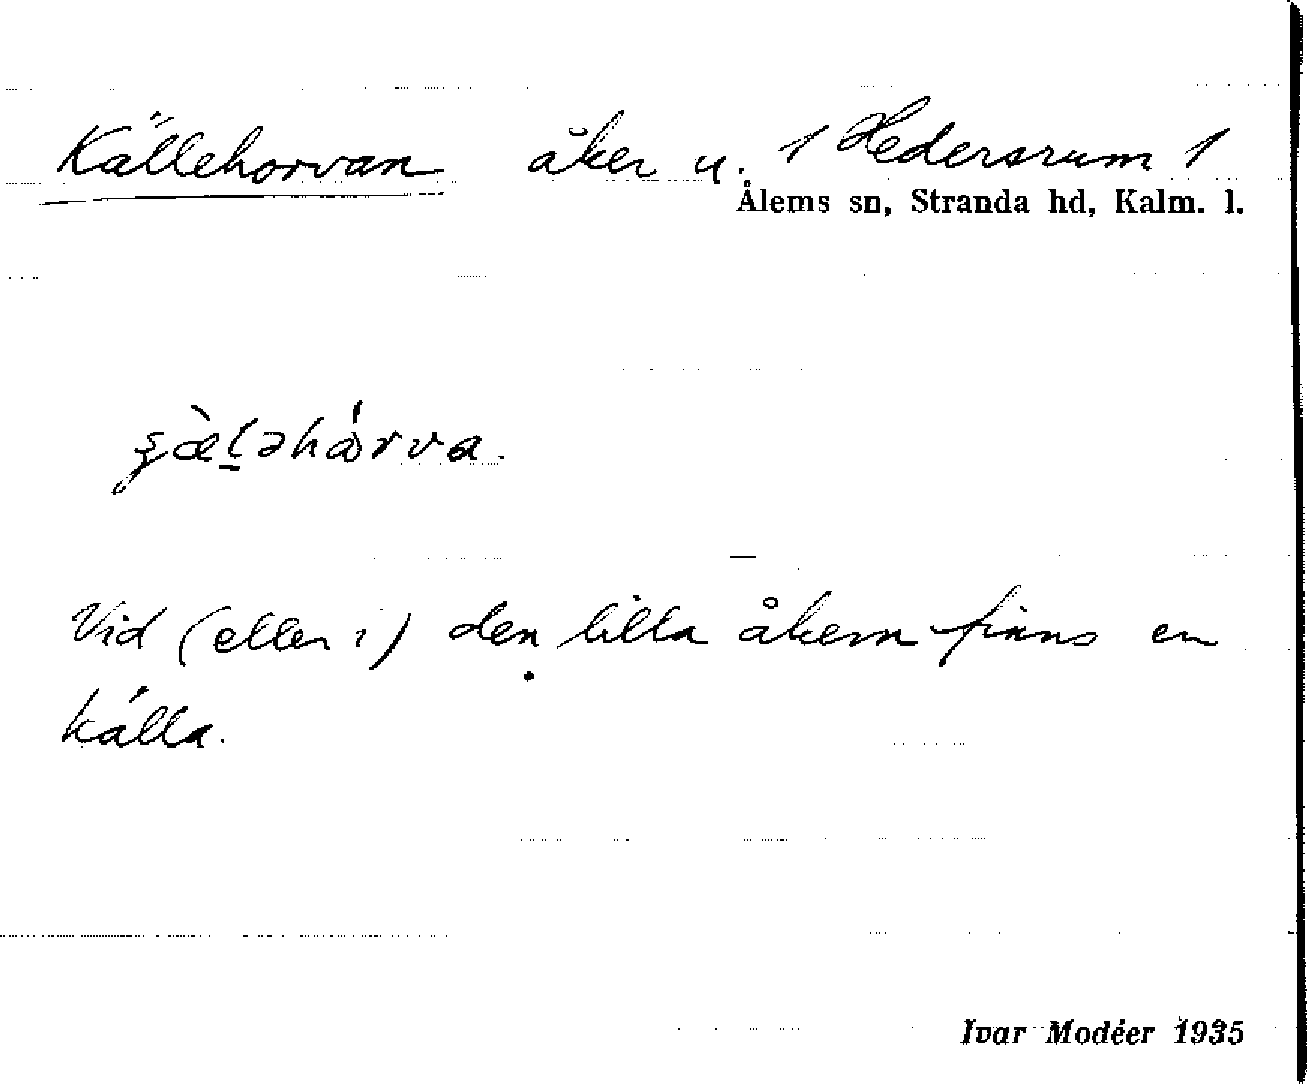 Källehorvan åker u. 1 Hedersrum 1
Ålems sn, Stranda hd, Kalm. l.
Vid (eller i) den lilla åkern finns en
källa.
Ivar Modéer 1935